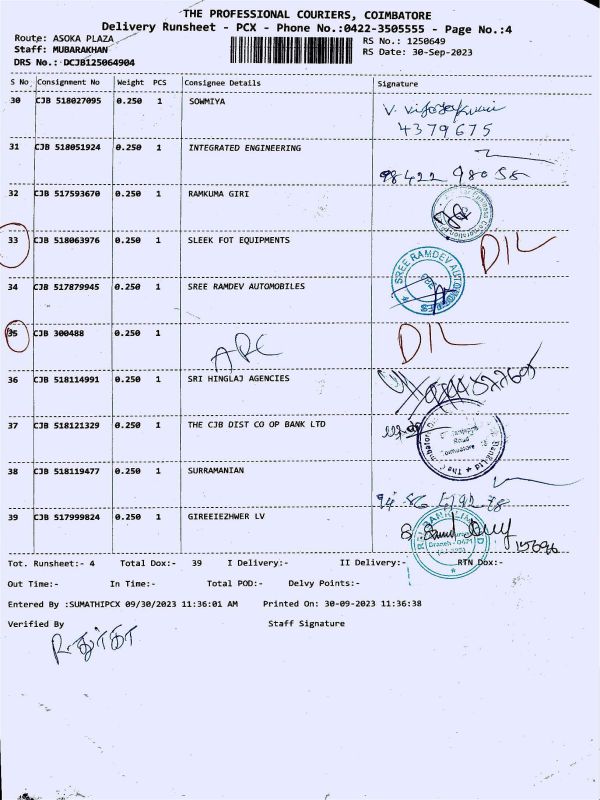 THE PROFESSIONAL COURIERS, COIMBATORE
Delivery Runsheet - PCX - Phone No.:0422-3505555 - Page No.:4
Route: ASOKA PLAZA
RS No.: 1250649
Staff: MUBARAKHAN
RS Date: 30-Sep-2023
DRS No.: DCJB125064904
S No Consignment No Weight PCS Consignee Details Signature
30 CJB 518027095 0.250 1 SOWMIYA
4379675
31 CJB 518051924 0.250 1 INTEGRATED ENGINEERING
98422 98055
32 CJB 517593670 0.250 1 RAMKUMA GIRI
33 CJB 518063976 0.250 1 SLEEK FOT EQUIPMENTS D/L
34 CJB 517879945 0.250 1 SREE RAMDEV AUTOMOBILES
SREE RAMDEV AUTOMOBILES
35 CJB 300488 0.250 1 D/L
ARC
36 CJB 518114991 0.250 1 SRI HINGLAJ AGENCIES
37 CJB 518121329 0.250 1 THE CJB DIST CO OP BANK LTD
38 CJB 518119477 0.250 1 SURRAMANIAN
39 CJB 517999824 0.250 1 GIREEIEZHWER LV
Tot. Runsheet:- 4 Total Dox:- 39 I Delivery:- II Delivery:- RTN Dox:-
Out Time:- In Time:- Total POD:- Delvy Points:-
Entered By :SUMATHIPCX 09/30/2023 11:36:01 AM Printed On: 30-09-2023 11:36:38
Verified By Staff Signature